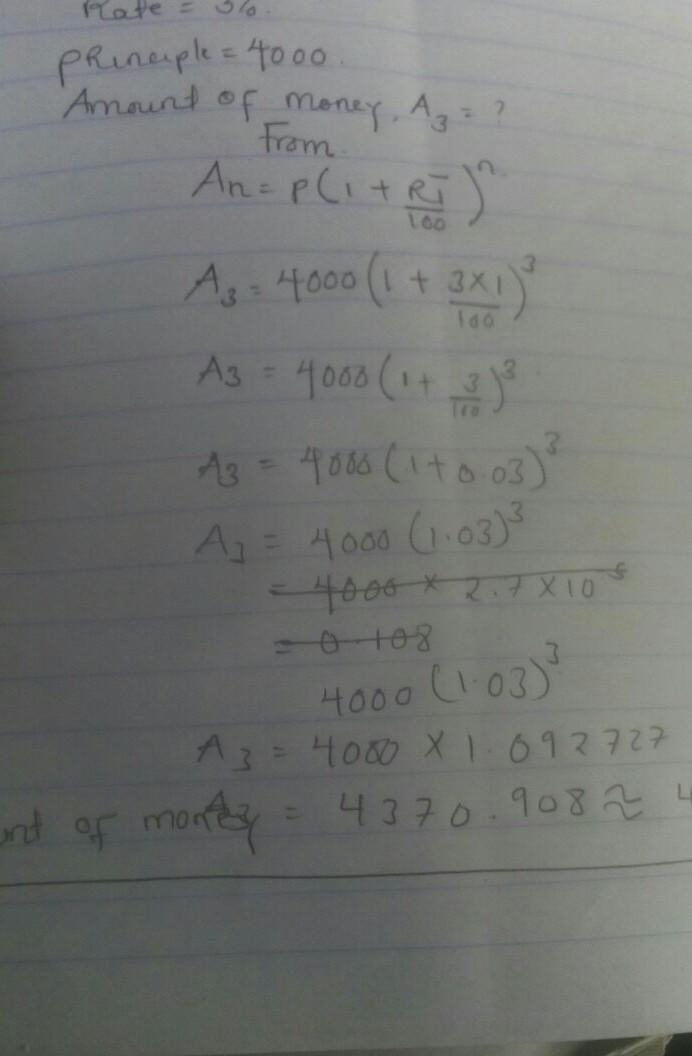 Rate = 3%.
PRinciple = 4000.
Amount of money, A3 = ?
From.
An = P(1 + RT/100)^n
A3 = 4000(1 + 3×1/100)^3
A3 = 4000(1 + 3/100)^3
A3 = 4000(1+0.03)^3
A3 = 4000(1.03)^3
= 4000 × 2.7 × 10^-5
= 0.108
4000(1.03)^3
A3 = 4000 × 1.092727
of money = 4370.908 ≈